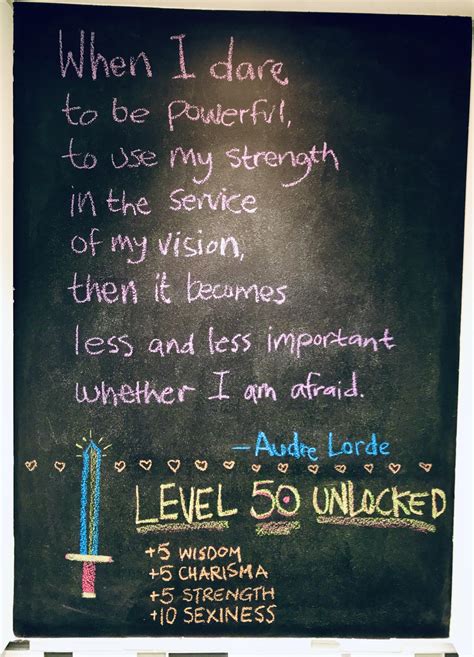 When I dare
to be powerful,
to use my strength
in the service
of my vision,
then it becomes
less and less important
whether I am afraid.
—Audre Lorde
LEVEL 50 UNLOCKED
+5 WISDOM
+5 CHARISMA
+5 STRENGTH
+10 SEXINESS